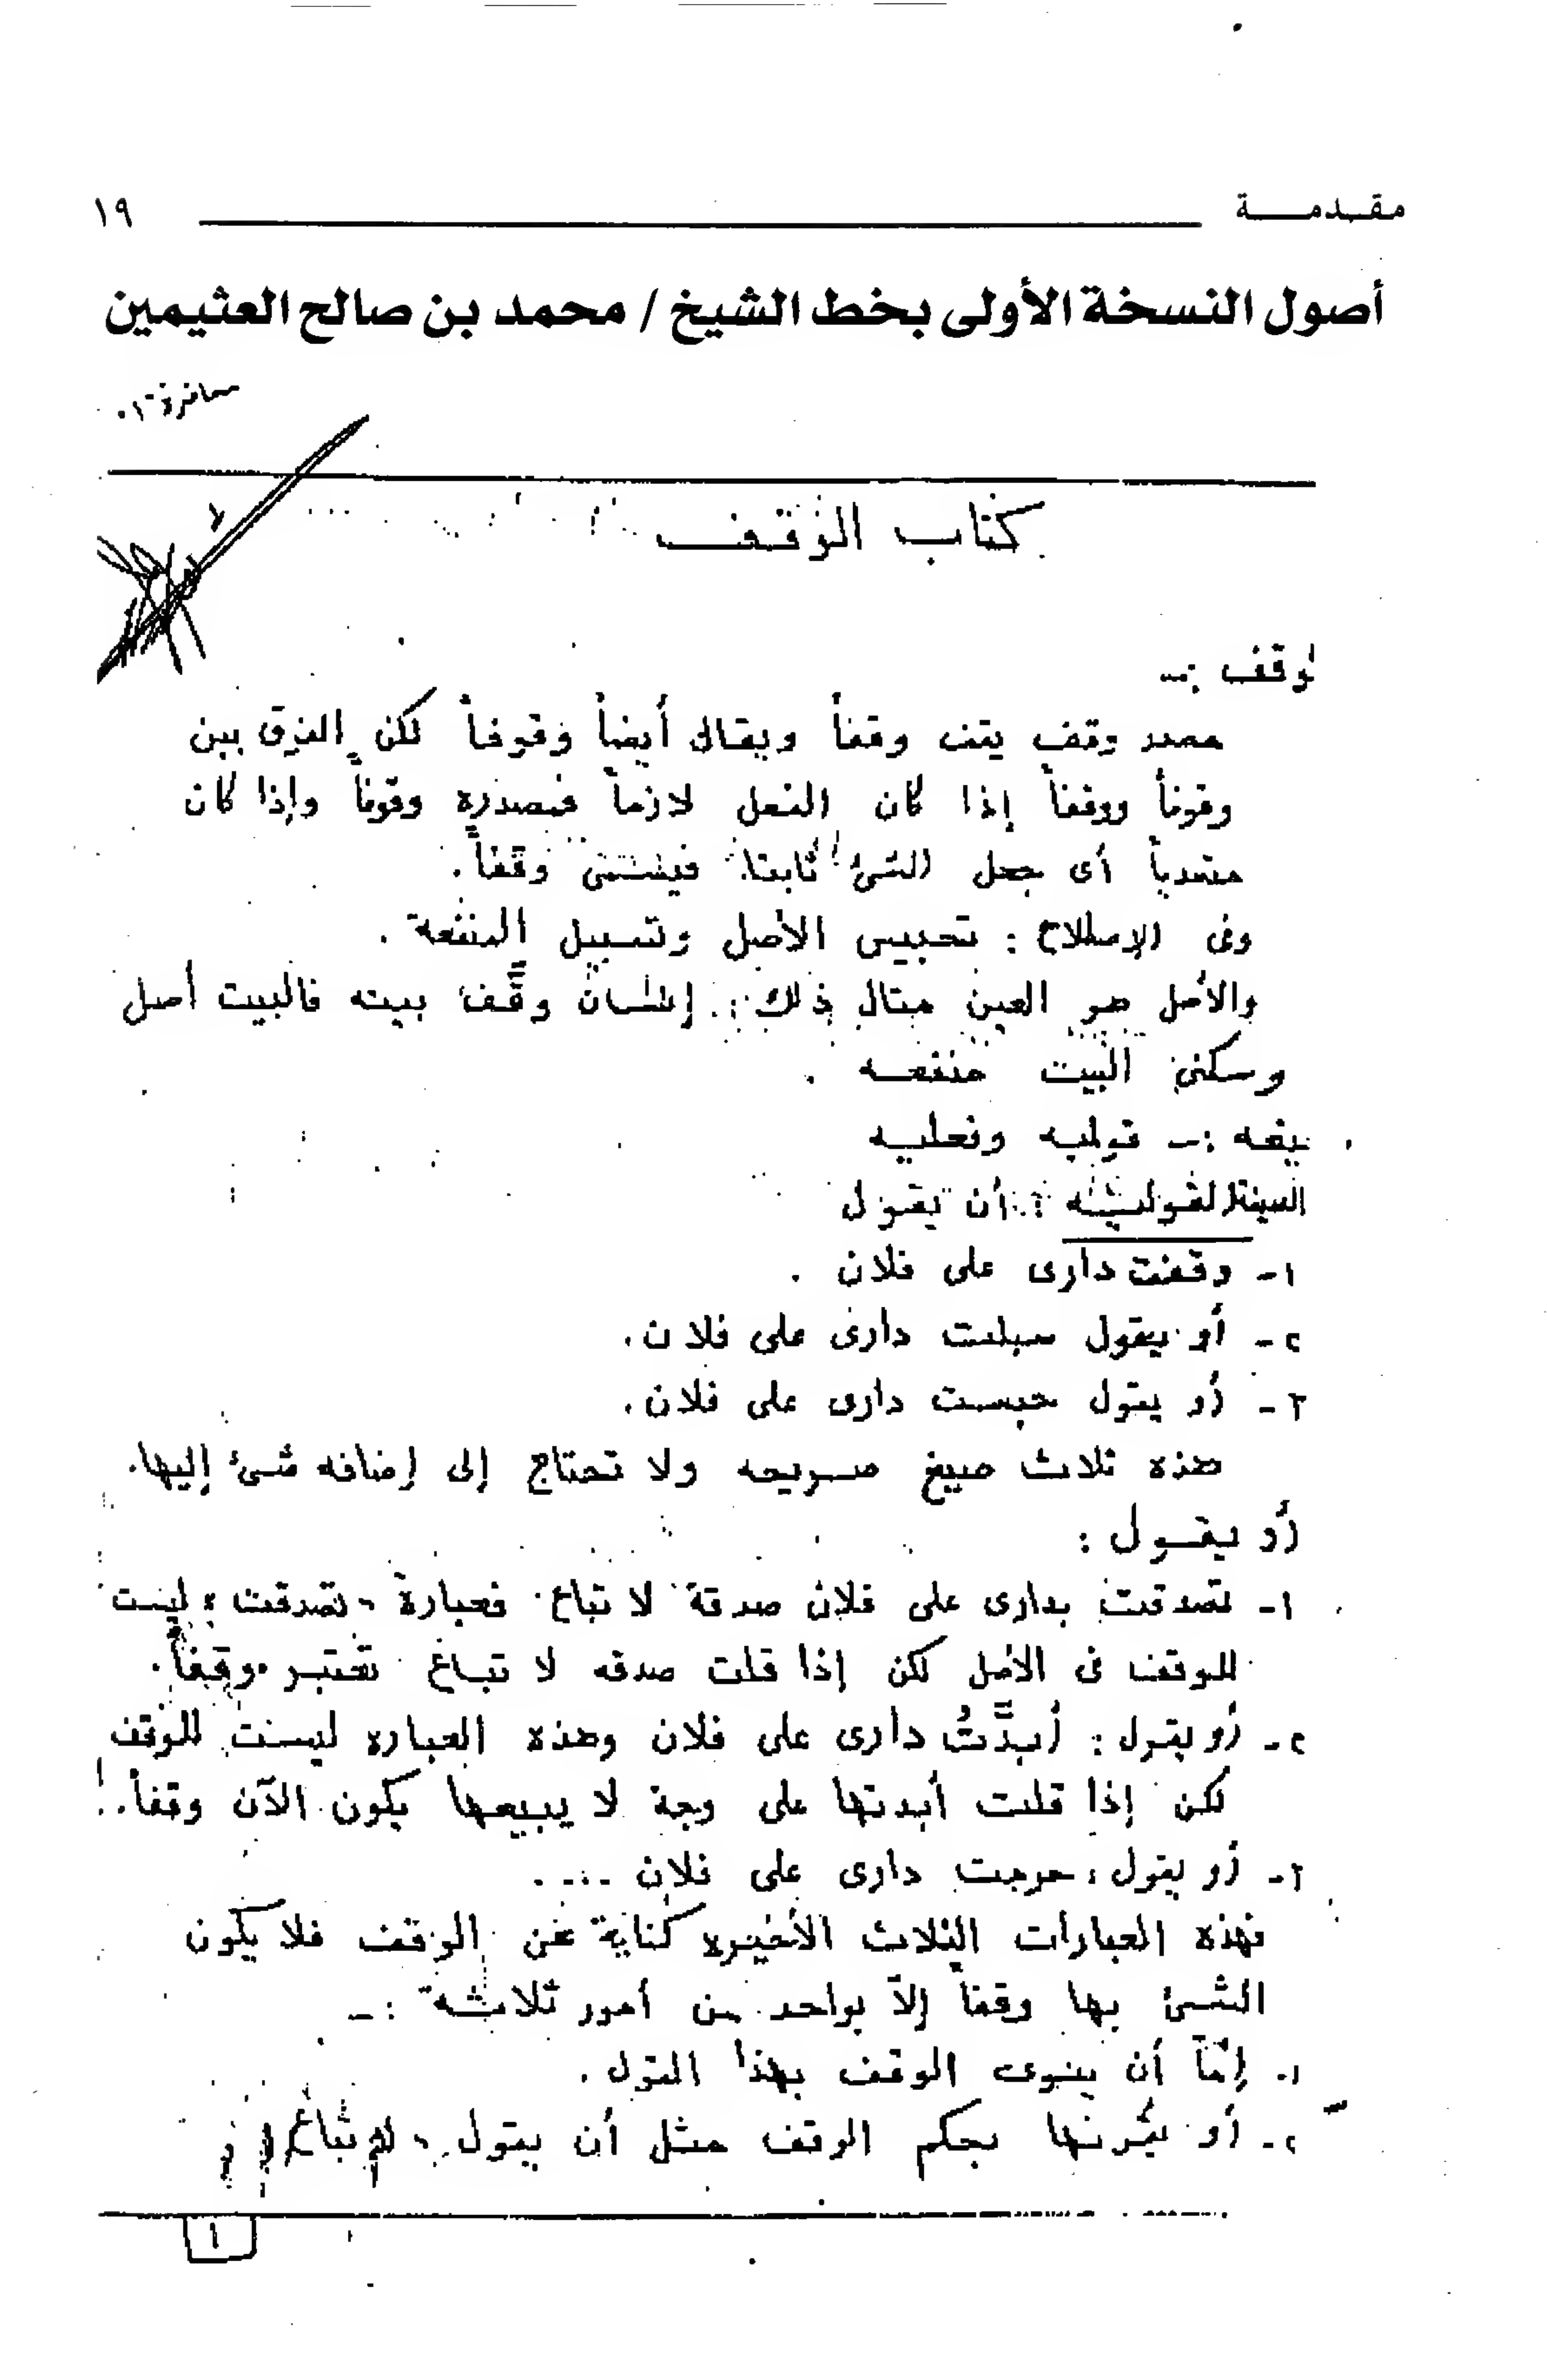 مقدمة
١٩
أصول النسخة الأولى بخط الشيخ / محمد بن صالح العثيمين
كتاب الوقف
لوقف :-
مصدر وقف يقف وقفاً ويقال أيضاً وقوفاً لكن الفرق بين
وقوفاً ووقفاً إذا كان الفعل لازماً فمصدره وقوفاً وإذا كان
متعدياً أى جعل الشئ ثابتا فيسمى وقفاً.
وفى الإصطلاح : تحبيس الأصل وتسبيل المنفعة .
والأصل هو العين مثال ذلك : إنسان وقَّف بيته فالبيت أصل
وسكنى البيت منفعه .
يغه :- قوليه وفعليه
الصيغة القوليه : أن يقول
١- وقفت دارى على فلان .
٢- أو يقول سبلت دارى على فلان .
٣- أو يقول حبست دارى على فلان .
هذه ثلاث صيغ صريحه ولا تحتاج إلى إضافه شئ إليها.
أو يقول :
١- تصدقت بدارى على فلان صدقة لا تباع فعبارة " تصدقت " ليست
للوقف فى الأصل لكن إذا قلت صدقه لا تباع تعتبر وقفاً.
٢- أو يقول : أبدَّتُ دارى على فلان وهذه العباره ليست للوقف
لكن إذا قلت أبدتها على وجة لا يبيعها يكون الآن وقفاً.
٣- أو يقول : حرمت دارى على فلان ....
فهذه العبارات الثلاث الأخيره كناية عن الوقف فلا يكون
الشئ بها وقفاً إلاّ بواحد من أمور ثلاثة :-
١- إمّا أن ينوى الوقف بهذا القول .
٢- أو يقرنها بحكم الوقف مثل أن يقول
١